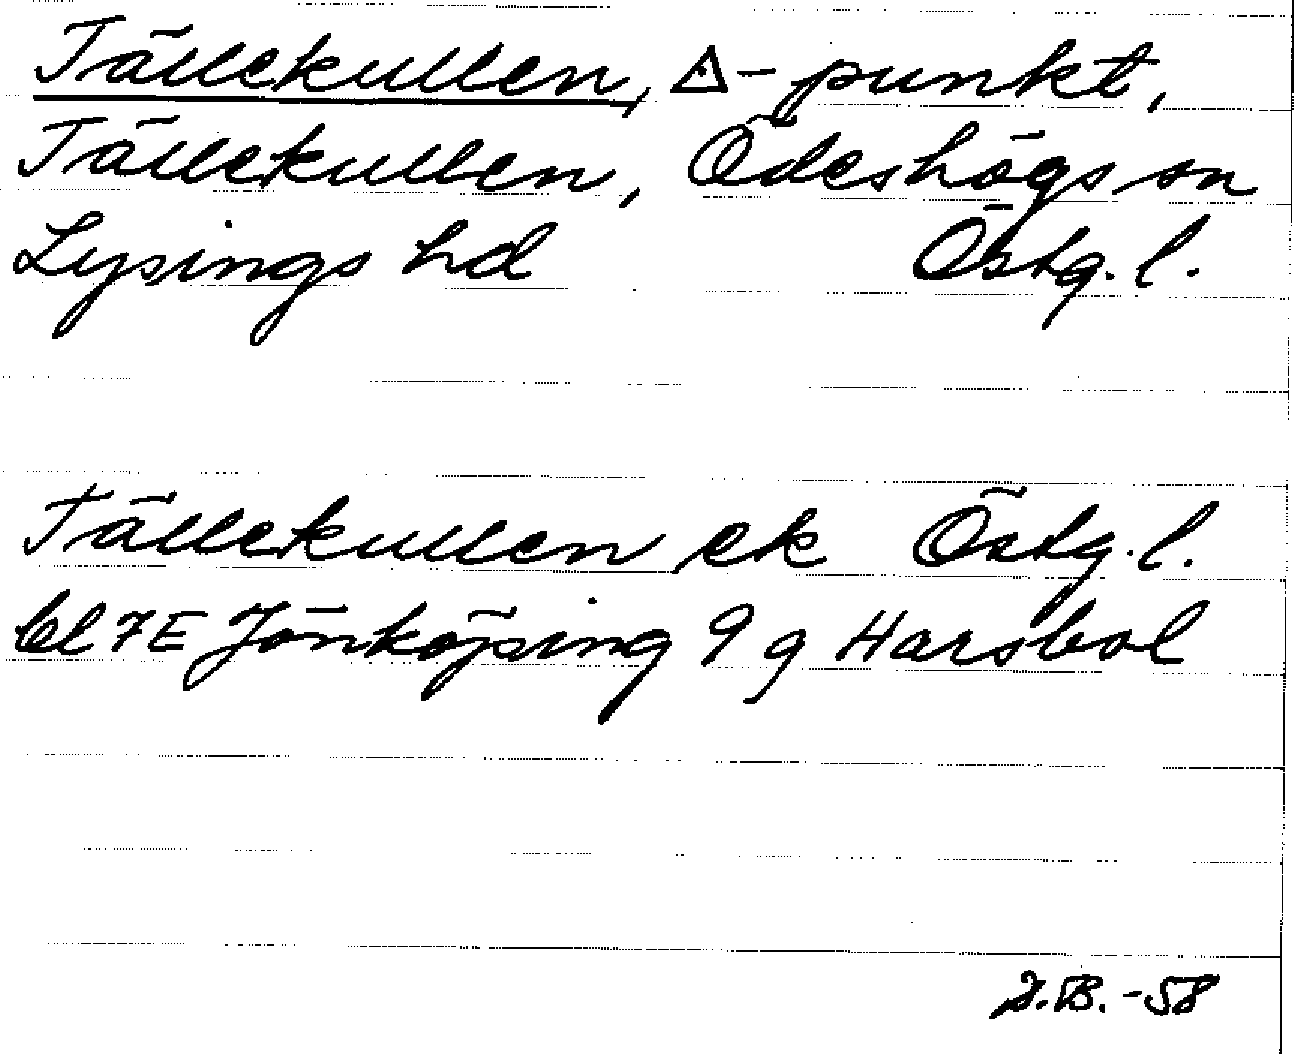 Tällekullen, △-punkt,
Tällekullen, Ödeshögs sn
Lysings hd Östg. l.
Tällekullen ek Östg. l.
bl 7E Jönköping 9 g Harsbol
-58